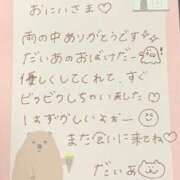 おにいさま♡
雨の中ありがとうです♡
だいあのおばけだぞー
優しくしてくれて、すぐ
ビクビクしちゃいました♡
はずかしいよぉー
また会いに来てね♡
だいあ